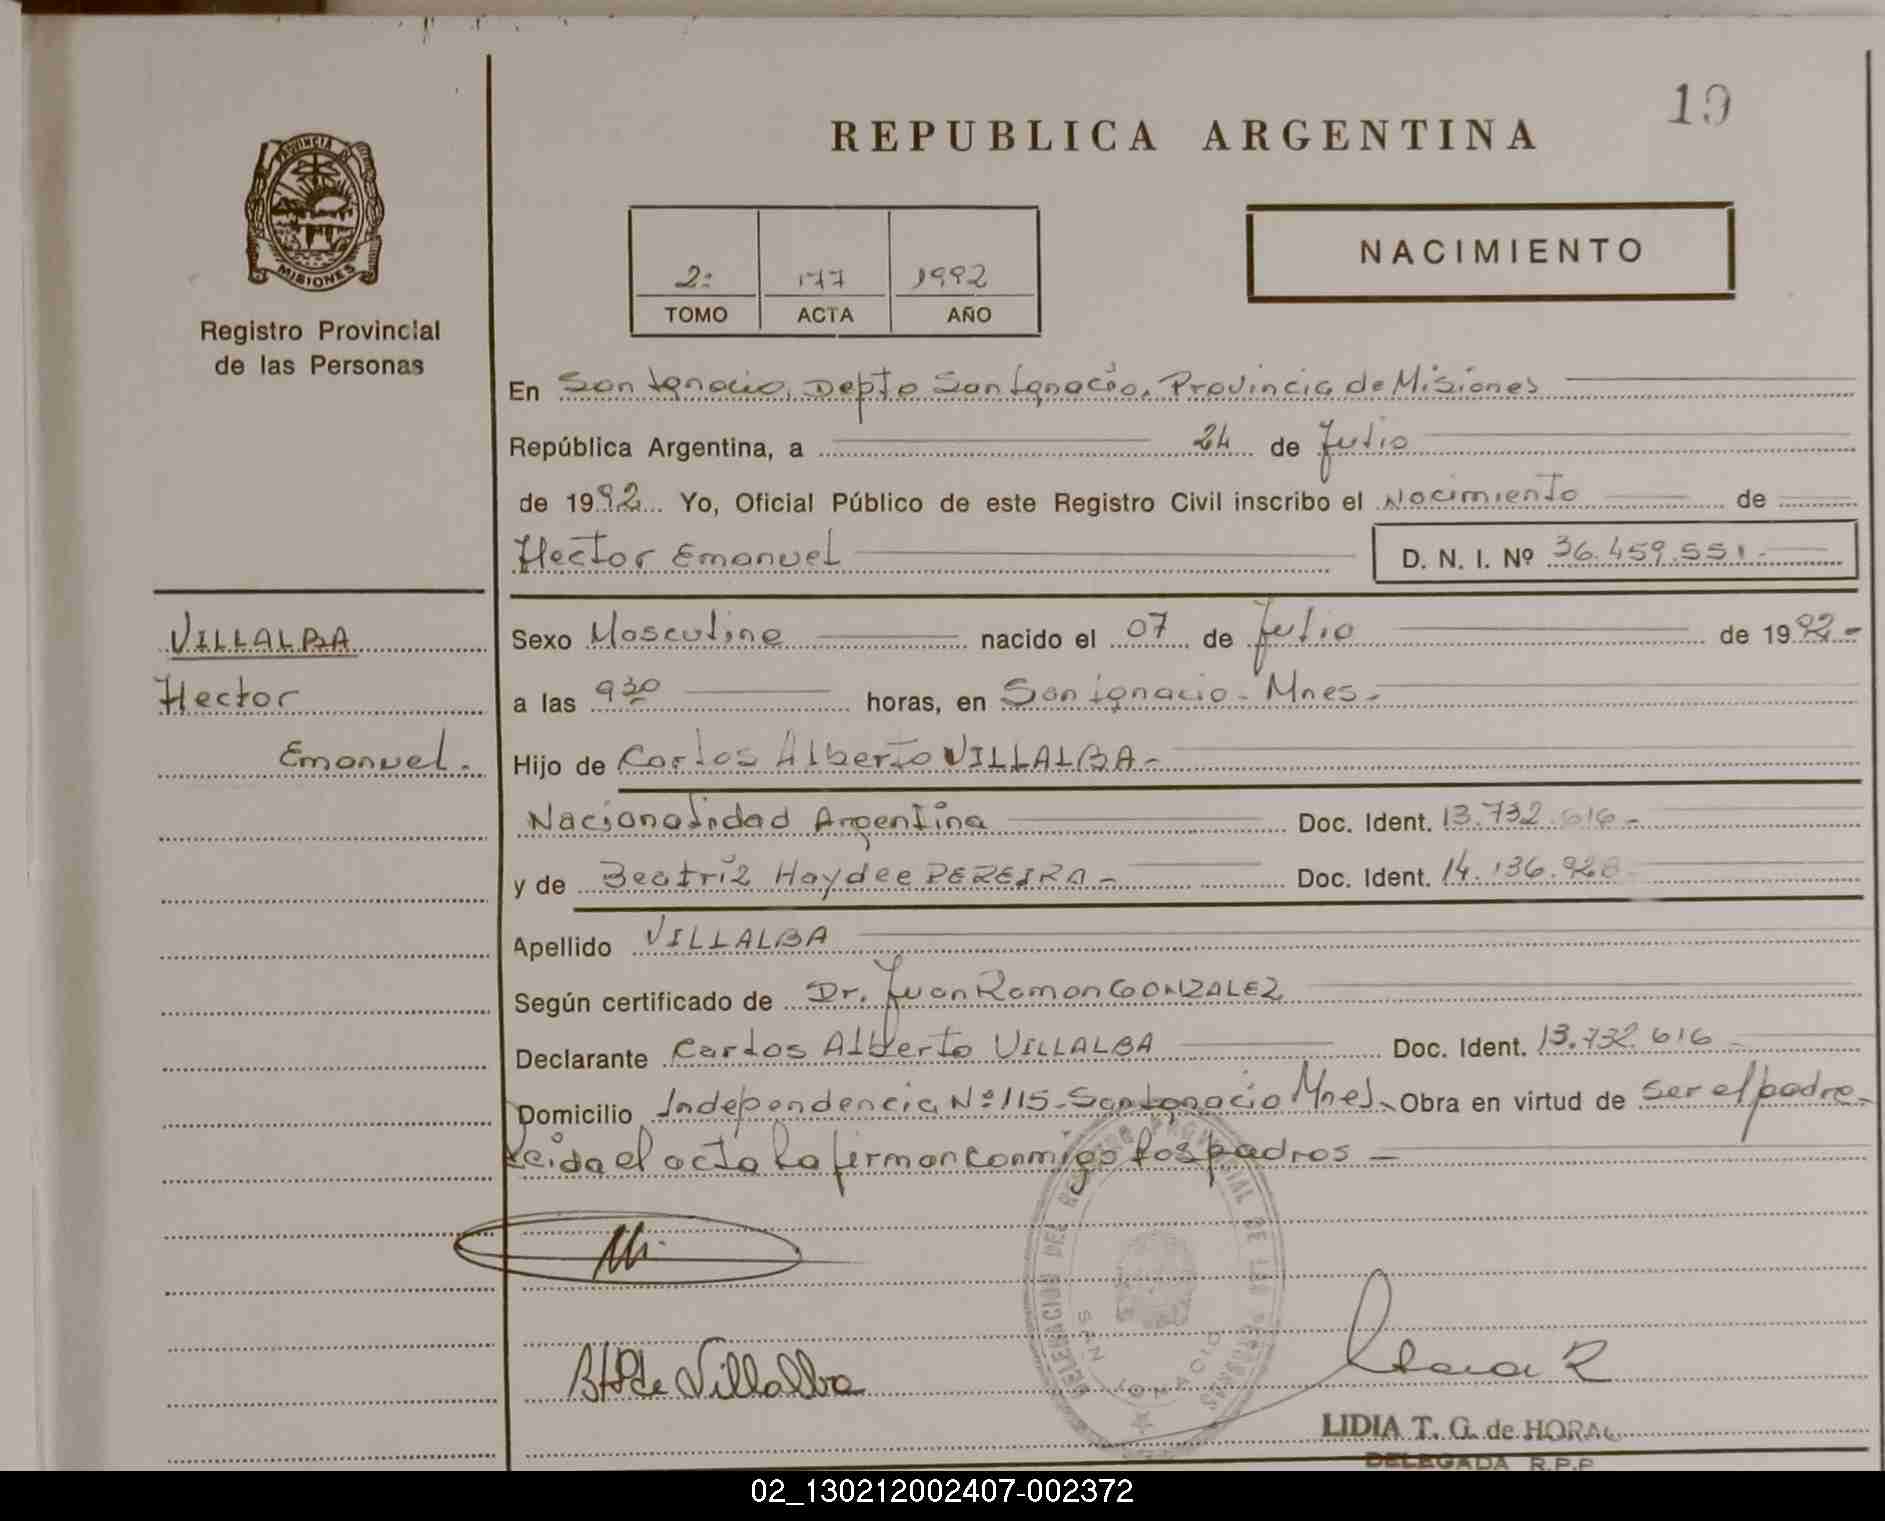 19
REPUBLICA ARGENTINA
PROVINCIA DE
MISIONES
Registro Provincial
de las Personas
2: 177 1992
TOMO ACTA AÑO
NACIMIENTO
En San Ignacio, Depto San Ignacio, Provincia de Misiones
República Argentina, a 24 de Julio
de 1992 Yo, Oficial Público de este Registro Civil inscribo el Nacimiento de
Hector Emanuel D. N. I. Nº 36.459.551.-
VILLALBA
Hector
Emanuel.
Sexo Masculino nacido el 07 de Julio de 1992-
a las 9 30 horas, en San Ignacio - Mnes.-
Hijo de Carlos Alberto VILLALBA-
Nacionalidad Argentina Doc. Ident. 13.732.616-
y de Beatriz Haydee PEREIRA- Doc. Ident. 14.136.928
Apellido VILLALBA
Según certificado de Dr. Juan Ramon GONZALEZ
Declarante Carlos Alberto VILLALBA Doc. Ident. 13.732.616
Domicilio Independencia Nº 115- San Ignacio Mnes. Obra en virtud de ser el padre-
Leida el acta la firman conmigo los padres-
DELEGACION DEL REGISTRO PROVINCIAL DE LAS PERSONAS
SAN IGNACIO
B H P de Villalba
LIDIA T. G. de HORAL
DELEGADA R.P.P
02_130212002407-002372